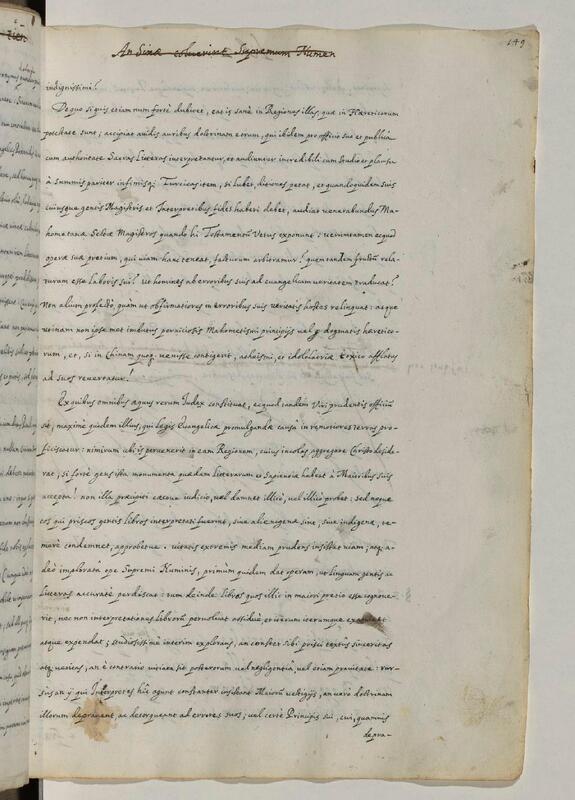 An Sinæ coluerint Supremum Numen
149
indignissimi?
De quo si quis etiam num fortè dubitet, eat is sanè in Regiones illas, quæ in Hæreticorum
potestate sunt; accipiat avidis auribus doctrinam eorum, qui ibidem pro officio suo et publicâ
cum authoritate Sacras Literas interpretantur, et audiuntur incredibili cum studio et plausu
à summis pariter infimisq; Turcicas item, si lubet, ditiones petat, et quandoquidem suis
cuiusque gentis Magistris et Interpretibus fides haberi debet, audiat venerabundus Ma-
hometanæ Sectæ Magistros quando hi Testamentum Vetus exponunt: verumtamen ecquod
operæ suæ pretium, qui viam hanc teneat, facturum arbitramur? quem tandem fructum rela-
turum esse laboris sui? Ut homines ab erroribus suis ad evangelicam veritatem traducat?
Non alium profectò, quàm ut obfirmatiores in erroribus suis veritatis hostes relinquat: atque
utinam non ipse met imbutus perniciosis Mahometismi principijs vel dogmatis hæretico-
rum, et, si in Chinam quoq; venisse contigerit, atheismi, et idololatriæ toxico afflatus
ad suos revertatur!
Ex quibus omnibus æquus rerum Iudex constituat, ecquod tandem Viri prudentis officium
sit, maximè quidem illius, qui Legis Evangelicæ promulgandæ causâ in remotiores terras pro-
ficiscatur: nimirum ubi is pervenerit in eam Regionem, cuius incolas aggregare Christo deside-
rat; si fortè gens ista monumenta quædam Litterarum et Sapientiæ habeat à Maioribus suis
accepta? non illa præcipiti cæcove iudicio, vel damnet illicò, vel illicò probet: sed neque
eos qui priscos gentis libros interpretati fuerint, sive alienigenæ sint, sive indigenæ, te-
merè condemnet, approbetve. vitatis extremis mediam prudens insistat viam; atq; a-
deò imploratâ ope Supremi Numinis, primùm quidem det operam, ut Linguam gentis ac
Literas accuratè perdiscat: tum deinde libros quos illic in maiori pretio esse cognove-
rit, nec non interpretationes librorum pervolvat assiduè et iterum iterumque
atque expendat; studiosissimè interim explorans, an constet sibi prisci textûs sinceritas
atq; veritas, an è contrario vitiata sit posterorum vel negligentiâ, vel etiam pravitate: rur-
sus an ij qui Interpretes hîc agunt constanter insistant Maiorum vestigijs, an verò doctrinam
illorum depravent, ac detorqueant ad errores suos; vel certè Principis sui, cui, quamvis
depra-